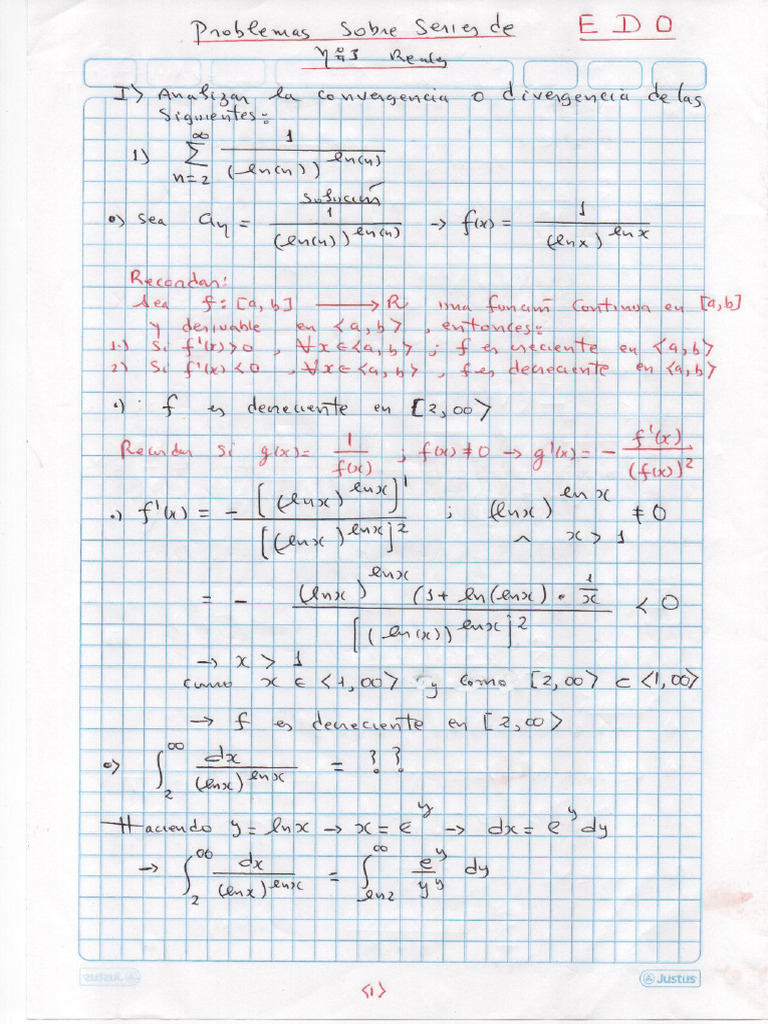 Problemas Sobre Series de EDO
Nºs Reales
I> Analizar la convergencia o divergencia de las
Siguientes:
1) ∑_{n=2}^{∞} 1/(ln(n))^{ln(n)}
Solución
•) sea a_n = 1/(ln(n))^{ln(n)} → f(x) = 1/(lnx)^{lnx}
Recordar:
Sea f: [a,b] → R una función continua en [a,b]
y derivable en <a,b>, entonces:
1.) Si f'(x)>0, ∀x∈<a,b>; f es creciente en <a,b>
2) Si f'(x)<0, ∀x∈<a,b>, f es decreciente en <a,b>
•) f es decreciente en [2,∞>
Recordar si g(x)= 1/f(x) ; f(x)≠0 → g'(x)= - f'(x)/(f(x))^2
•) f'(x) = - [(lnx)^{lnx}]'/[(lnx)^{lnx}]^2 ; (lnx)^{lnx} ≠0
∧ x>1
= - (lnx)^{lnx} (1+ln(lnx)•1/x/[(ln(x))^{lnx}]^2 < 0
→ x > 1
como x ∈ <1,∞> y como [2,∞> ⊂ <1,∞>
→ f es decreciente en [2,∞>
•) ∫_2^∞ dx/(lnx)^{lnx} = ??
Haciendo y = lnx → x = e^y → dx = e^y dy
→ ∫_2^∞ dx/(lnx)^{lnx} = ∫_{ln2}^∞ e^y/y^y dy
Justus
Justus
<1>